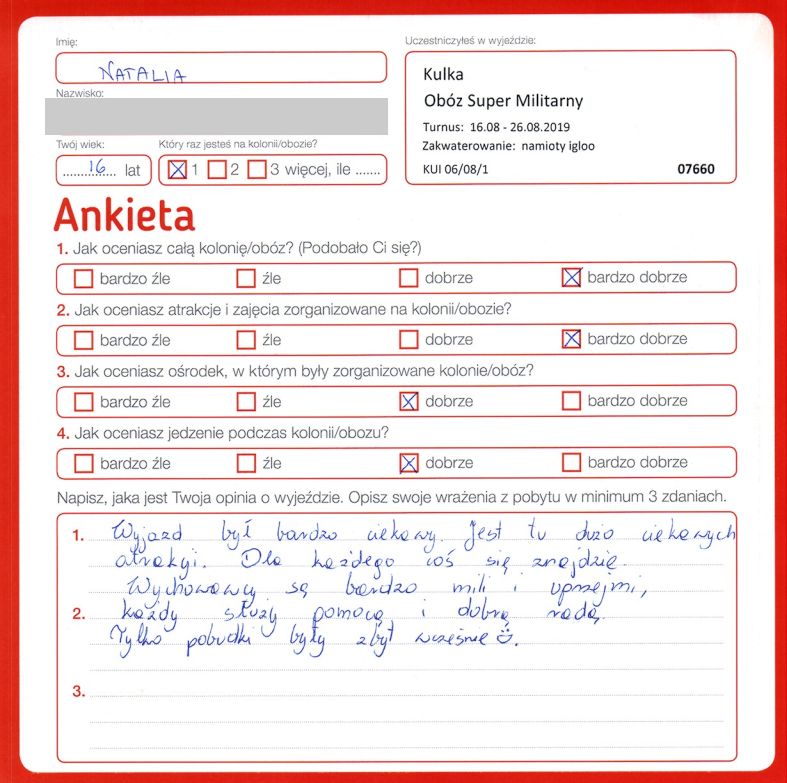 Imię:
NATALIA
Nazwisko:
Twój wiek:
16 lat
Który raz jesteś na kolonii/obozie?
1 2 3 więcej, ile .......
Uczestniczyłeś w wyjeździe:
Kulka
Obóz Super Militarny
Turnus: 16.08 - 26.08.2019
Zakwaterowanie: namioty igloo
KUI 06/08/1 07660
Ankieta
1. Jak oceniasz całą kolonię/obóz? (Podobało Ci się?)
bardzo źle źle dobrze bardzo dobrze
2. Jak oceniasz atrakcje i zajęcia zorganizowane na kolonii/obozie?
bardzo źle źle dobrze bardzo dobrze
3. Jak oceniasz ośrodek, w którym były zorganizowane kolonie/obóz?
bardzo źle źle dobrze bardzo dobrze
4. Jak oceniasz jedzenie podczas kolonii/obozu?
bardzo źle źle dobrze bardzo dobrze
Napisz, jaka jest Twoja opinia o wyjeździe. Opisz swoje wrażenia z pobytu w minimum 3 zdaniach.
1. Wyjazd był bardzo ciekawy. Jest tu dużo ciekawych
atrakcji. Dla każdego coś się znajdzie.
Wychowawcy są bardzo mili i uprzejmi,
2. każdy służy pomocą i dobrą radą.
Tylko pobudki były zbyt wcześnie☺.
3.